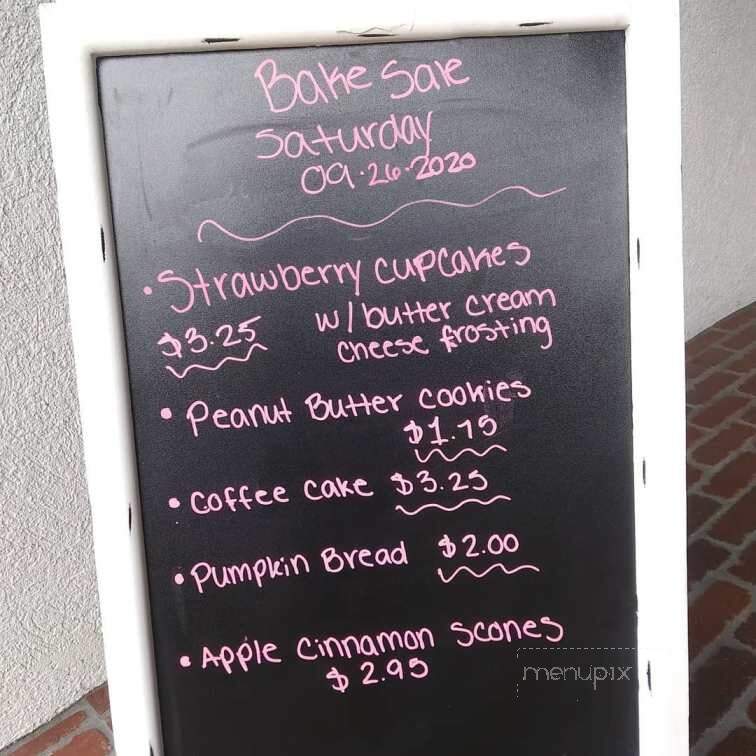 Bake Sale
Saturday
09.26.2020
• Strawberry cupcakes
$3.25 w/ butter cream
cheese frosting
• Peanut Butter cookies
$1.75
• Coffee cake $3.25
• Pumpkin Bread $2.00
• Apple cinnamon scones
$2.95
menupix